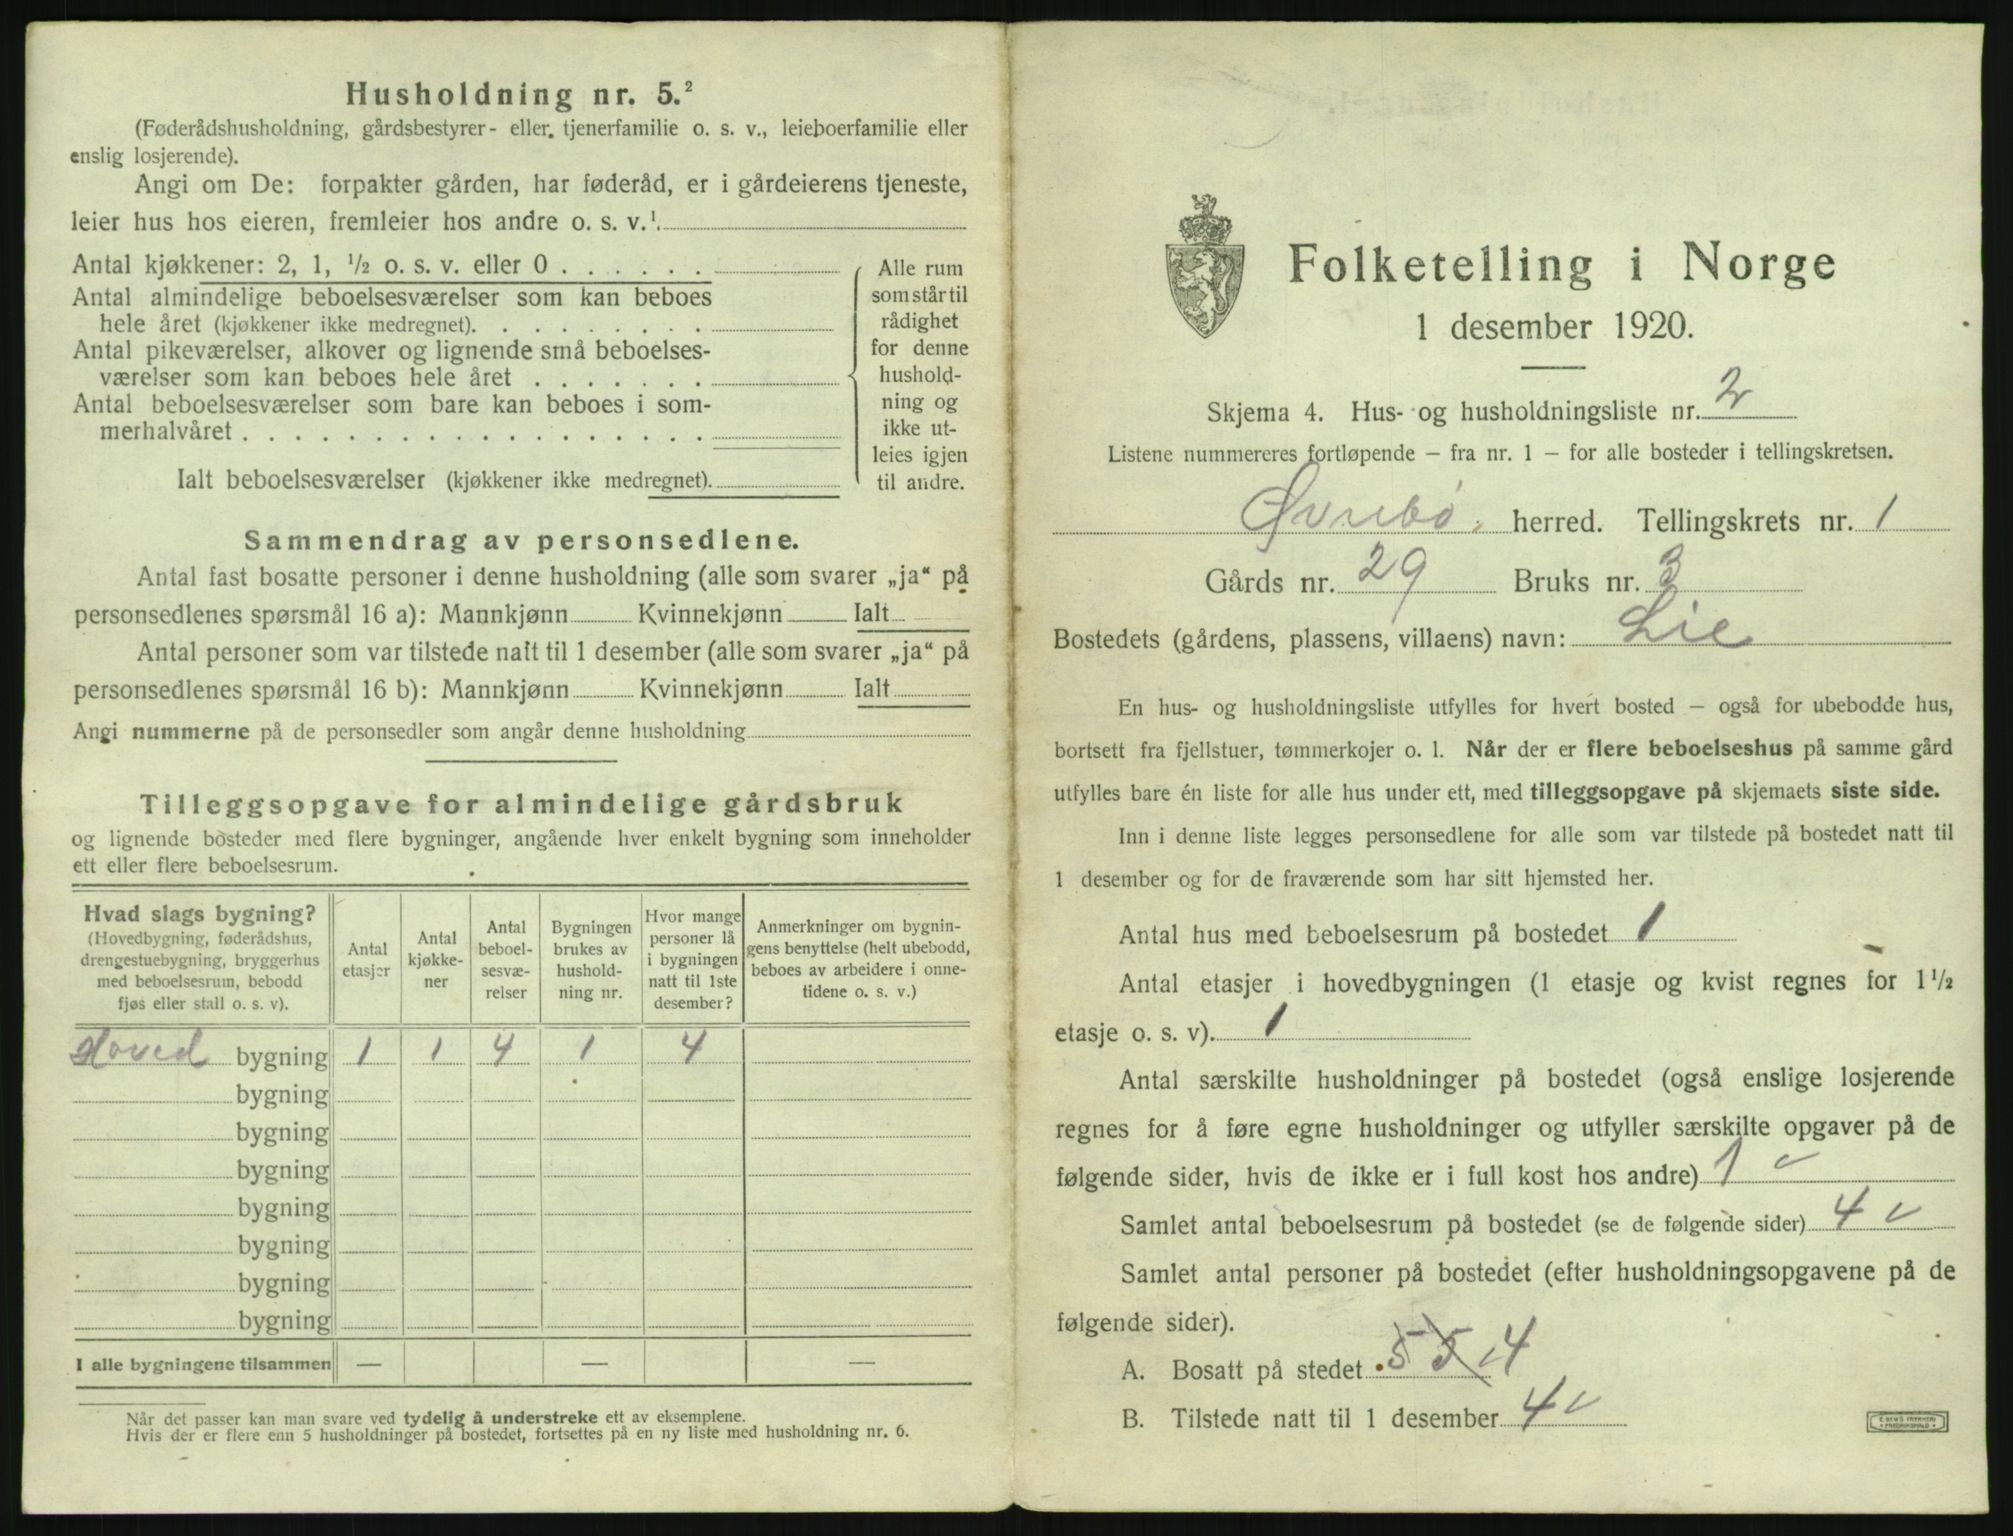 Husholdning nr. 5.²
(Føderådshusholdning, gårdsbestyrer- eller tjenerfamilie o. s. v., leieboerfamilie eller
enslig losjerende).
Angi om De: forpakter gården, har føderåd, er i gårdeierens tjeneste,
leier hus hos eieren, fremleier hos andre o. s. v.¹
Antal kjøkkener: 2, 1, ½ o. s. v. eller 0 . . . . . .
Antal almindelige beboelsesværelser som kan beboes
hele året (kjøkkener ikke medregnet). . . . . . . . .
Antal pikeværelser, alkover og lignende små beboelses-
værelser som kan beboes hele året . . . . . . .
Antal beboelsesværelser som bare kan beboes i som-
merhalvåret . . . . . . . . . . . . . . . . . .
Alle rum
som står til
rådighet
for denne
hushold-
ning og
ikke ut-
leies igjen
til andre.
Ialt beboelsesværelser (kjøkkener ikke medregnet).
Sammendrag av personsedlene.
Antal fast bosatte personer i denne husholdning (alle som svarer „ja“ på
personsedlenes spørsmål 16 a): Mannkjønn Kvinnekjønn Ialt
Antal personer som var tilstede natt til 1 desember (alle som svarer „ja“ på
personsedlenes spørsmål 16 b): Mannkjønn Kvinnekjønn Ialt
Angi nummerne på de personsedler som angår denne husholdning
Tilleggsopgave for almindelige gårdsbruk
og lignende bosteder med flere bygninger, angående hver enkelt bygning som inneholder
ett eller flere beboelsesrum.
Hvad slags bygning?
(Hovedbygning, føderådshus,
drengestuebygning, bryggerhus
med beboelsesrum, bebodd
fjøs eller stall o. s. v).
Antal
etasjer
Antal
kjøkke-
ner
Antal
beboel-
sesvæ-
relser
Bygningen
brukes av
hushold-
ning nr.
Hvor mange
personer lå
i bygningen
natt til 1ste
desember?
Anmerkninger om bygnin-
gens benyttelse (helt ubebodd,
beboes av arbeidere i onne-
tidene o. s. v.)
Hoved bygning 1 1 4 1 4
bygning
bygning
bygning
bygning
bygning
bygning
bygning
I alle bygningene tilsammen — — —
Når det passer kan man svare ved tydelig å understreke ett av eksemplene.
Hvis der er flere enn 5 husholdninger på bostedet, fortsettes på en ny liste med husholdning nr. 6.
Folketelling i Norge
1 desember 1920.
Skjema 4. Hus- og husholdningsliste nr. 2
Listene nummereres fortløpende – fra nr. 1 – for alle bosteder i tellingskretsen.
Øvrebö herred. Tellingskrets nr. 1
Gårds nr. 29 Bruks nr. 3
Bostedets (gårdens, plassens, villaens) navn: Lie
En hus- og husholdningsliste utfylles for hvert bosted – også for ubebodde hus,
bortsett fra fjellstuer, tømmerkojer o. l. Når der er flere beboelseshus på samme gård
utfylles bare én liste for alle hus under ett, med tilleggsopgave på skjemaets siste side.
Inn i denne liste legges personsedlene for alle som var tilstede på bostedet natt til
1 desember og for de fraværende som har sitt hjemsted her.
Antal hus med beboelsesrum på bostedet 1
Antal etasjer i hovedbygningen (1 etasje og kvist regnes for 1½
etasje o. s. v). 1
Antal særskilte husholdninger på bostedet (også enslige losjerende
regnes for å føre egne husholdninger og utfyller særskilte opgaver på de
følgende sider, hvis de ikke er i full kost hos andre) 1
Samlet antal beboelsesrum på bostedet (se de følgende sider) 4
Samlet antal personer på bostedet (efter husholdningsopgavene på de
følgende sider).
A. Bosatt på stedet 5 5 4
B. Tilstede natt til 1 desember 4